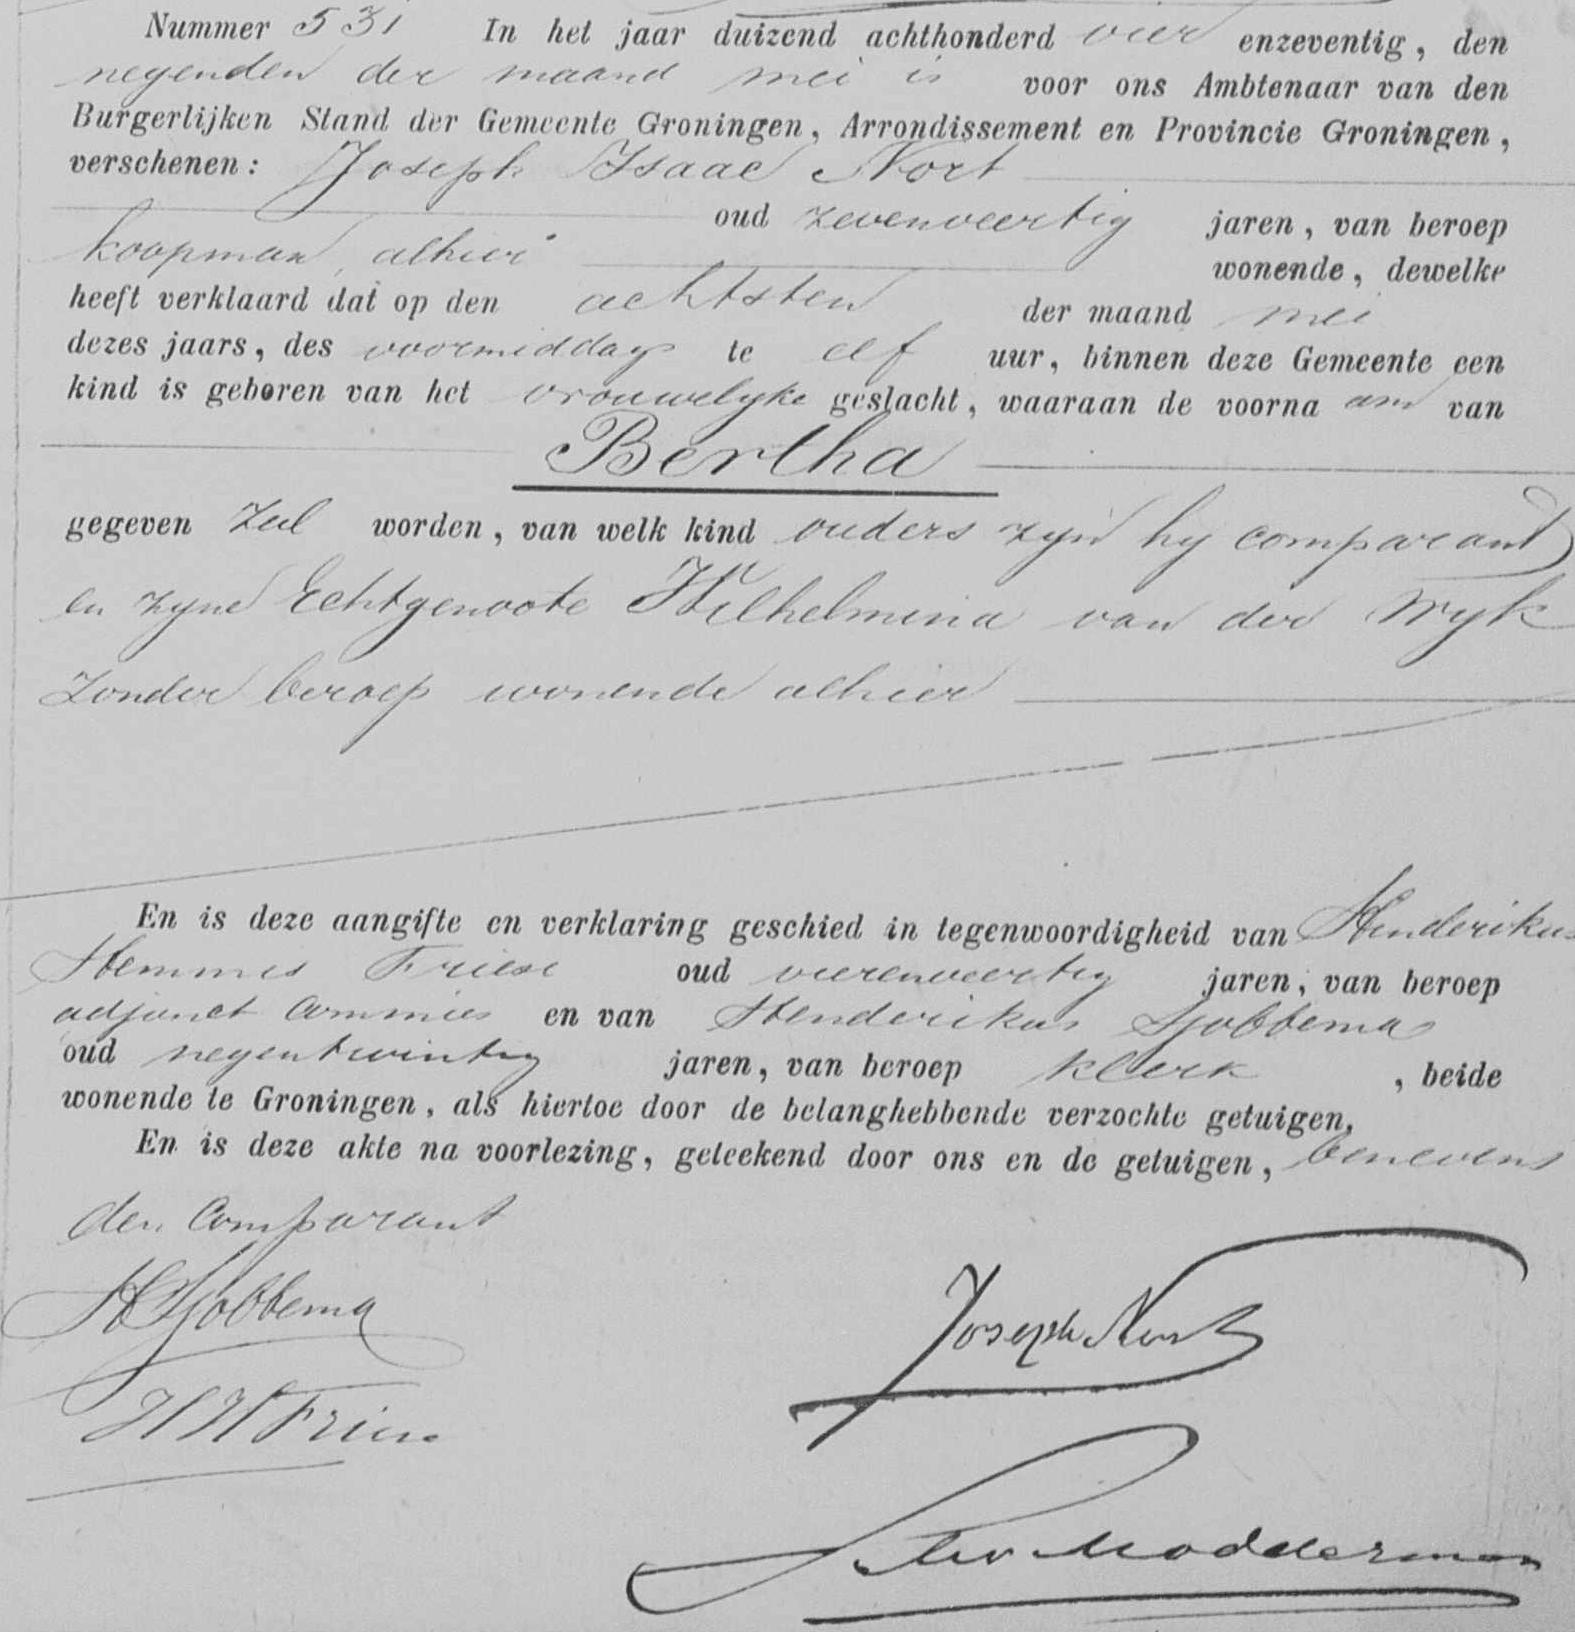 Nummer 531 In het jaar duizend achthonderd vier enzeventig, den
negenden der maand mei is voor ons Ambtenaar van den
Burgerlijken Stand der Gemeente Groningen, Arrondissement en Provincie Groningen,
verschenen: Joseph Isaac Nort
oud zevenveertig jaren, van beroep
koopman, alhier wonende, dewelke
heeft verklaard dat op den achtsten der maand mei
dezes jaars, des voormiddags te elf uur, binnen deze Gemeente een
kind is geboren van het vrouwelyke geslacht, waaraan de voorna am van
Bertha
gegeven zal worden, van welk kind ouders zyn hy comparant
en zyne Echtgenoote Wilhelmina van der Wyk
zonder beroep wonende alhier
En is deze aangifte en verklaring geschied in tegenwoordigheid van Henderikus
Hemmes Friese oud vierenveertig jaren, van beroep
adjunct Commies en van Henderikus Sjobbema
oud negentwintig jaren, van beroep klerk, beide
wonende te Groningen, als hiertoe door de belanghebbende verzochte getuigen.
En is deze akte na voorlezing, geteekend door ons en de getuigen, benevens
den Comparant
HSjobbema
Joseph Nort
HHFriese
Modderman